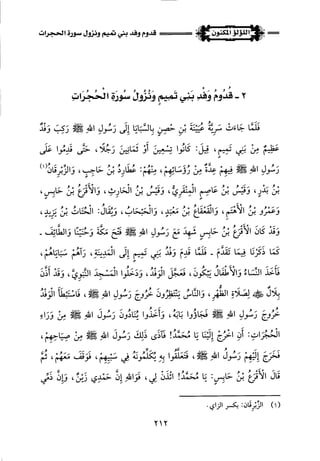 اللؤلؤ المكنون
قدوم وفد بني تميم ونزول سورة الحجرات
٢ - قُدُومُ وَفْدِ بَنِي تَمِيمٍ وَنُزُولُ سُورَةِ الْحُجُرَاتِ
فَلَمَّا جَاءَتْ سَرِيَّةُ عُيَيْنَةَ بْنِ حِصْنٍ بِالسَّبَايَا إِلَى رَسُولِ اللهِ ﷺ رَكِبَ وَفْدٌ
عَظِيمٌ مِنْ بَنِي تَمِيمٍ، قِيلَ: كَانُوا تِسْعِينَ أَوْ ثَمَانِينَ رَجُلًا، حَتَّى قَدِمُوا عَلَى
رَسُولِ اللهِ ﷺ فِيهِمْ عِدَّةٌ مِنْ رُؤَسَائِهِمْ، مِنْهُمْ: عُطَارِدُ بْنُ حَاجِبٍ، وَالزِّبْرِقَانُ(١)
بْنُ بَدْرٍ، وَقَيْسُ بْنُ عَاصِمٍ الْمِنْقَرِيُّ، وَقَيْسُ بْنُ الْحَارِثِ، وَالْأَقْرَعُ بْنُ حَابِسٍ،
وَعَمْرُو بْنُ الْأَهْتَمِ، وَالْقَعْقَاعُ بْنُ مَعْبَدٍ، وَالْحَبْحَابُ، وَيُقَالُ: الْحُتَاتُ بْنُ يَزِيدَ،
وَقَدْ كَانَ الْأَقْرَعُ بْنُ حَابِسٍ شَهِدَ مَعَ رَسُولِ اللهِ ﷺ فَتْحَ مَكَّةَ وَحُنَيْنًا وَالطَّائِفَ -
كَمَا ذَكَرْنَا فِيمَا تَقَدَّمَ - فَلَمَّا قَدِمَ وَفْدُ بَنِي تَمِيمٍ إِلَى الْمَدِينَةِ، رَآهُمْ سَبَايَاهُمْ،
فَأَخَذَ النِّسَاءُ وَالْأَطْفَالُ يَبْكُونَ، فَعَجِلَ الْوَفْدُ، وَدَخَلُوا الْمَسْجِدَ النَّبَوِيَّ، وَقَدْ أَذَّنَ
بِلَالٌ ﷺ لِصَلَاةِ الظُّهْرِ، وَالنَّاسُ يَنْتَظِرُونَ خُرُوجَ رَسُولِ اللهِ ﷺ، فَاسْتَبْطَأَ الْوَفْدُ
خُرُوجَ رَسُولِ اللهِ ﷺ فَجَاؤُوا بَابَهُ، وَأَخَذُوا يُنَادُونَ رَسُولَ اللهِ ﷺ مِنْ وَرَاءِ
الْحُجُرَاتِ: أَنِ اخْرُجْ إِلَيْنَا يَا مُحَمَّدُ! فَآذَى ذَلِكَ رَسُولَ اللهِ ﷺ مِنْ صِيَاحِهِمْ،
فَخَرَجَ إِلَيْهِمْ رَسُولُ اللهِ ﷺ، فَتَعَلَّقُوا بِهِ يُكَلِّمُونَهُ فِي سَبْيِهِمْ، فَوَقَفَ مَعَهُمْ، ثُمَّ
قَالَ الْأَقْرَعُ بْنُ حَابِسٍ: يَا مُحَمَّدُ! ائْذَنْ لِي، فَوَاللهِ إِنَّ حَمْدِي زَيْنٌ، وَإِنَّ ذَمِّي
(١) الزِّبْرِقَان: بكسر الزاي.
٢١٢